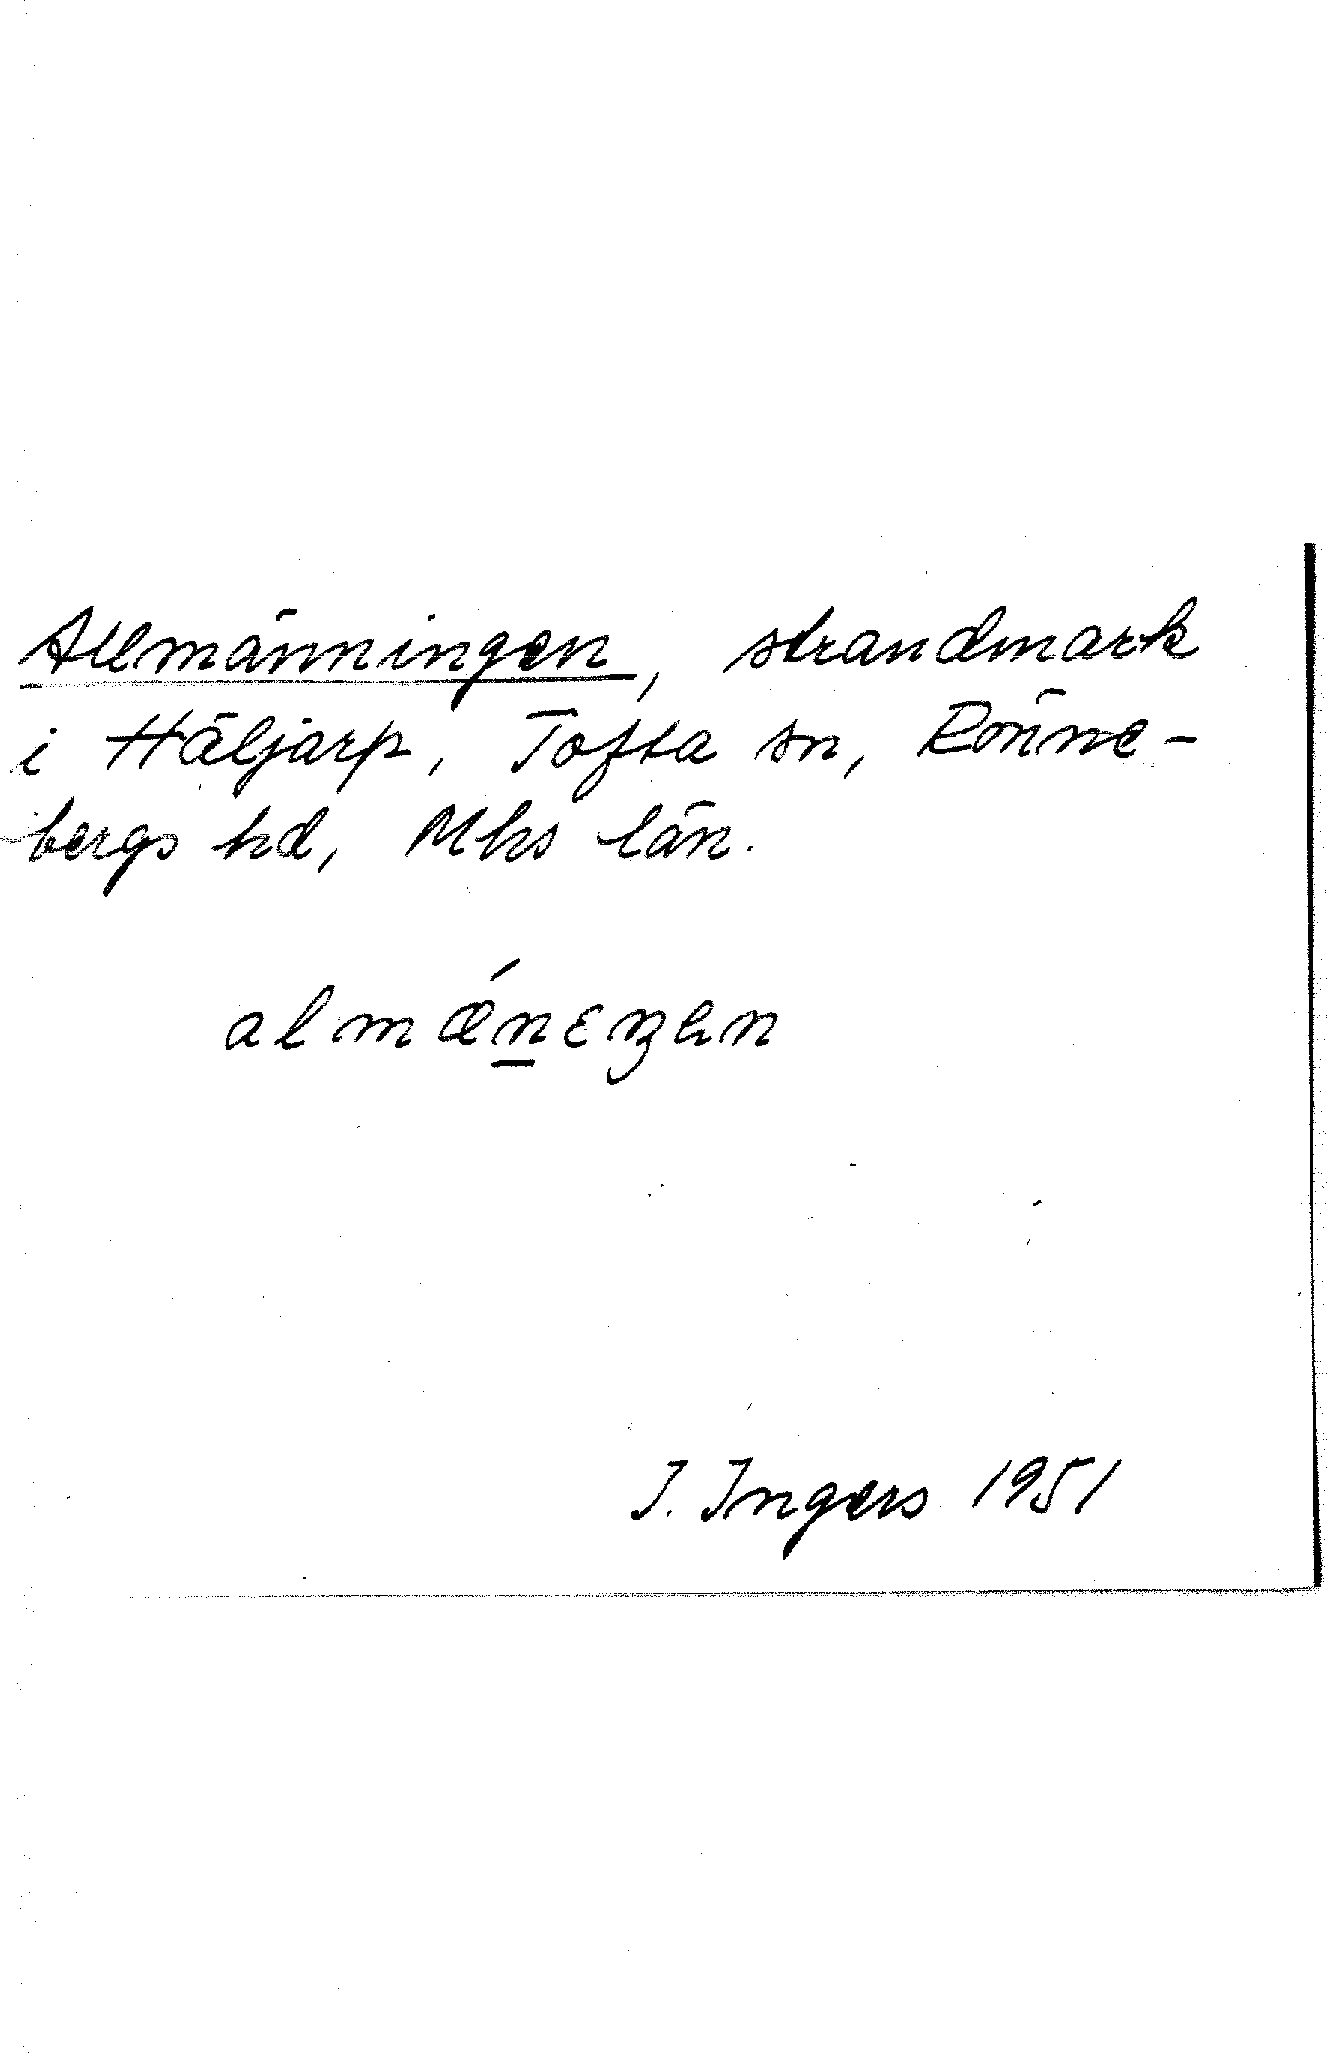 Allmänningen, strandmark
i Häljarp, Tofta sn, Rönne-
bergs hd, Mhs län.
almǽn̲ɛŋən
I. Ingers 1951